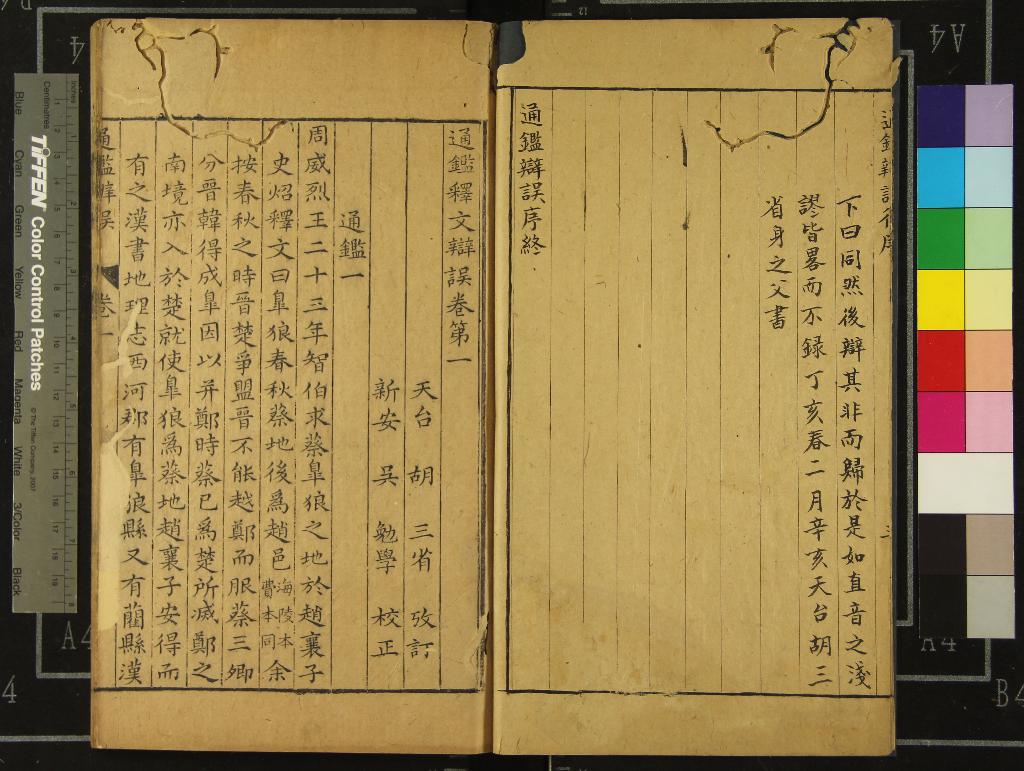 下曰同然後辯其非而歸於是如直音之淺
謬皆畧而不録丁亥春二月辛亥天台胡三
省身之父書
通鑑辯誤序終
通鑑釋文辯誤卷第一
天台胡三省攷訂
新安吳勉學校正
通鑑一
周威烈王二十三年智伯求蔡皐狼之地於趙襄子
史炤釋文曰皐狼春秋蔡地後爲趙邑海陵本費本同余
按春秋之時晉楚爭盟晉不能越鄭而服蔡三卿
分晉韓得成皐因以并鄭時蔡已爲楚所滅鄭之
南境亦入於楚就使皐狼爲蔡地趙襄子安得而
有之漢書地理志西河郡有皐狼縣又有藺縣漢
通鑑辯誤 卷一
TIFFEN Color Control Patches
© The Tiffen Company, 2007
Centimetres
Inches
Blue Cyan Green Yellow Red Magenta White 3/Color Black
A4
A4
A4
B4